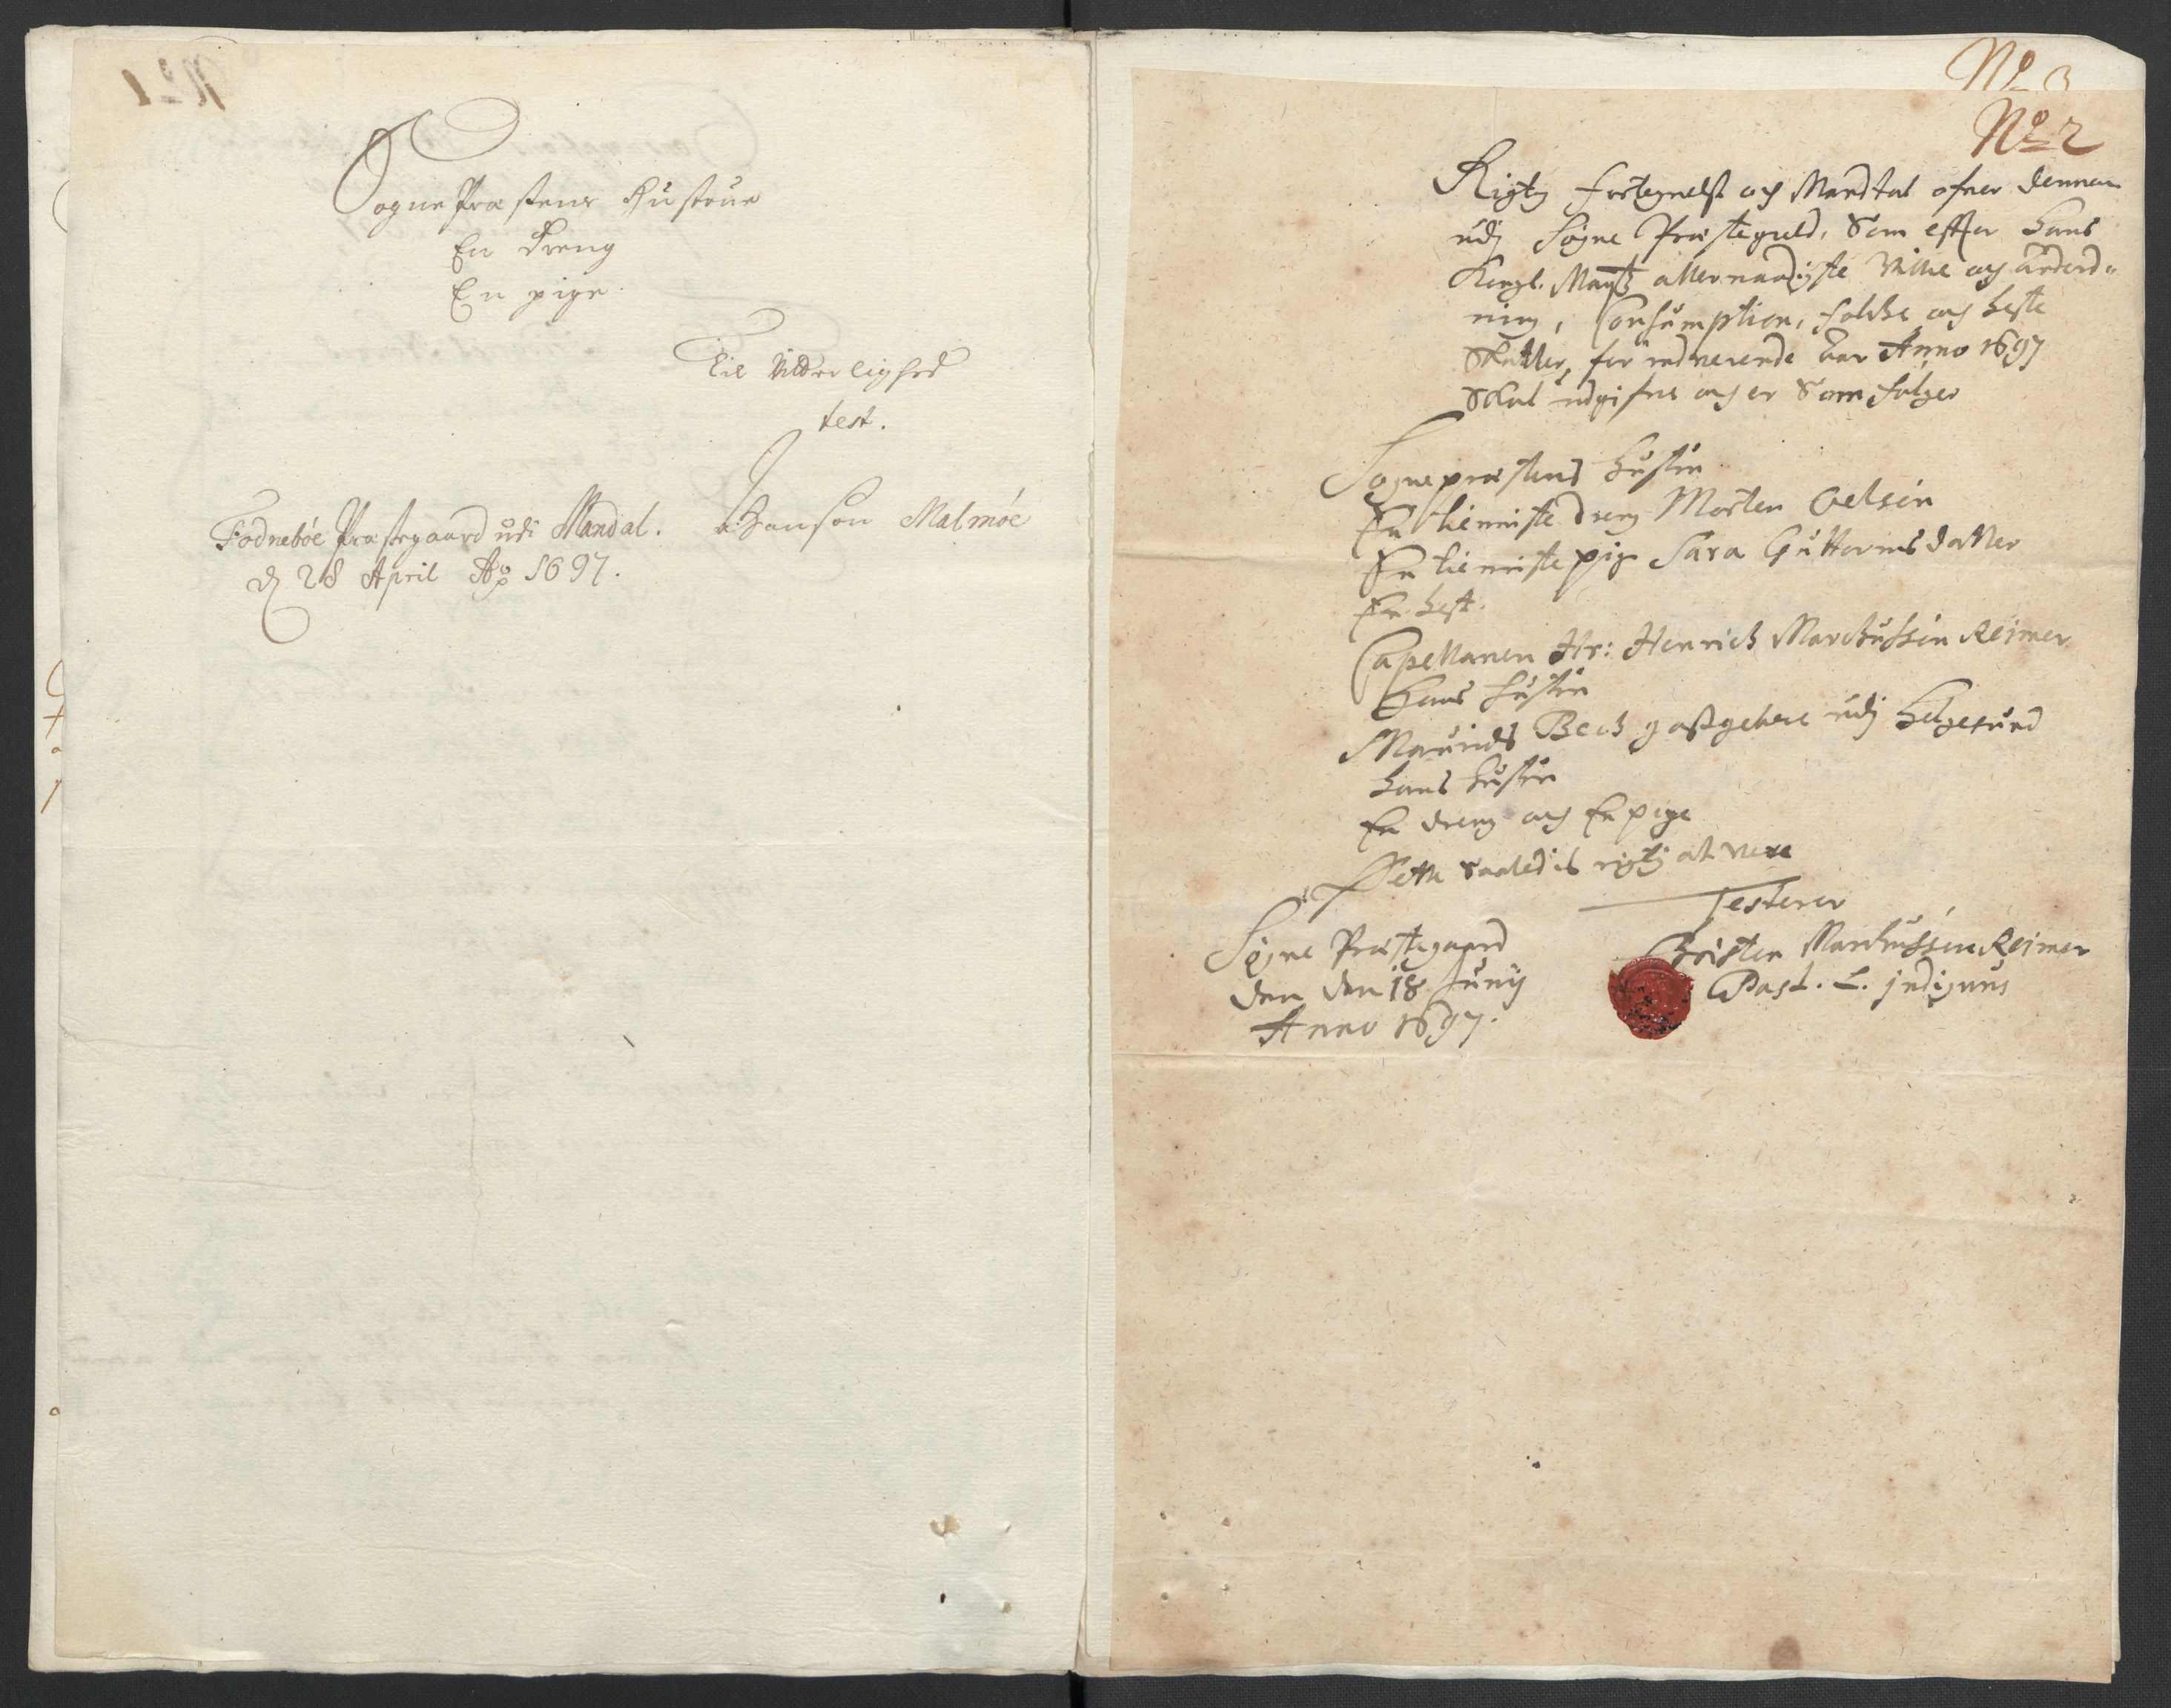 No 1
Sogne Præstens Hustrue
En dreng
En pige
Til Vitterlighed
test.
JHanson Malmöe
Fodneböe Præstegaard udi Mandal.
d 28 April Ao 1697.
No 3
No 2
Rigtig fortegnelse och Mandtal ofver dennem
udj Søgne Præstegield, Som effter Hans
Kongl. Maytz allernaadigste Villie og anord-
ning, Consumption, folche och heste
Skatter, for indverende Aar Anno 1697
Skal udgifves och er Som følger
Sogneprestens Hustru
En tienniste dreng Morten Oelsen
En tienniste pige Sara Guttormsdatter
En hest.
Capellanen Hr: Henrich Marchussen Reimer
Hans hustru
Maurids Bech gastgebere udj Helgesund
Hans hustru
En dreng och En pige
Dette saaledis rigtig at vere
Testerer
Christen Marchussen Reimer
Past. L. indignus
Søgne Præstegaard
den 18 Junij
Anno 1697.